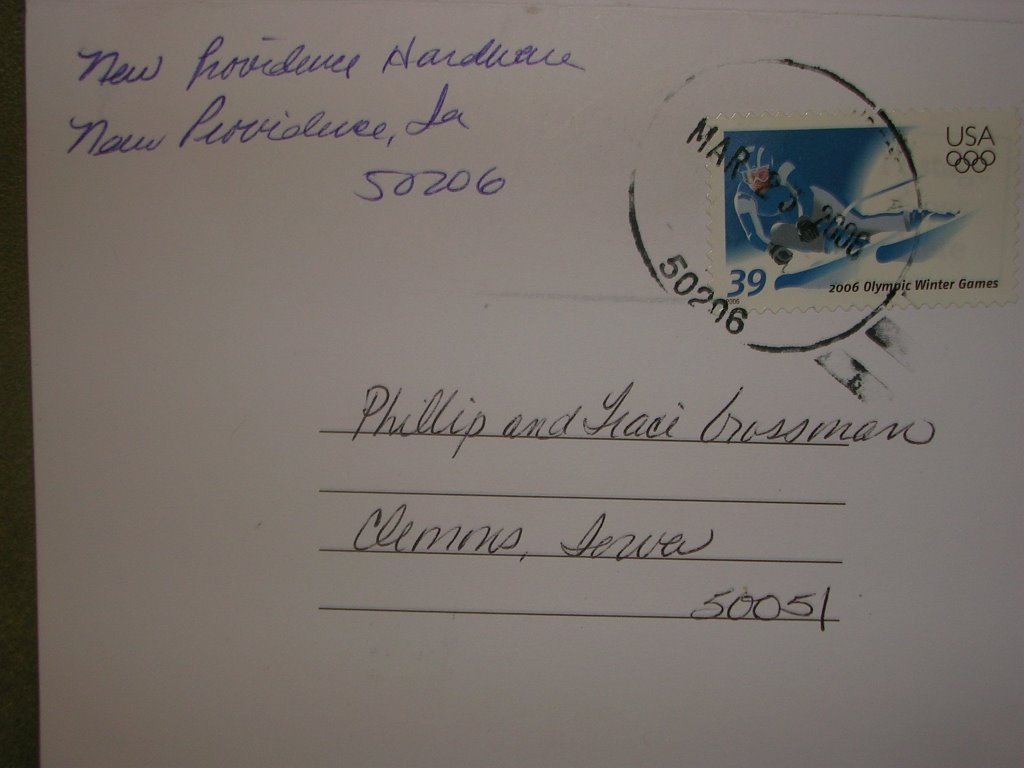 New Providence Hardware
New Providence, Ia
50206
MAR 23 2006
50206
USA
39
2006
2006 Olympic Winter Games
Phillip and Traci Crossman
Clemons, Iowa
50051